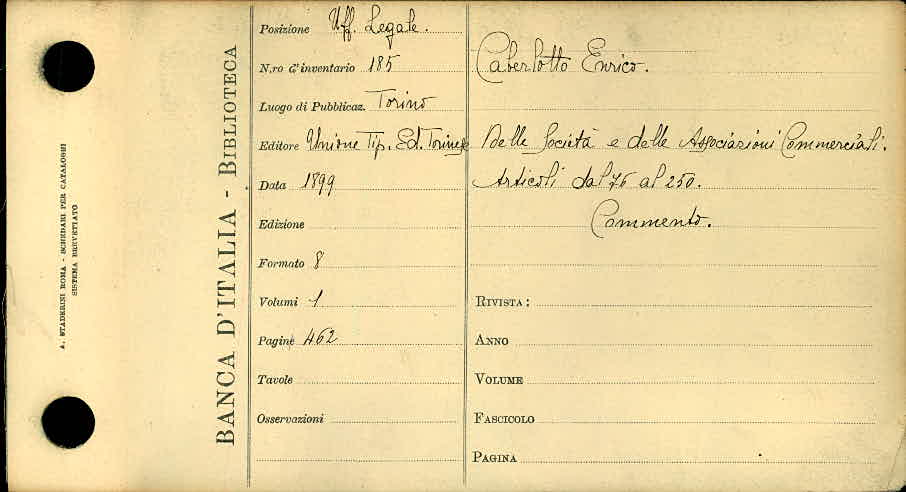 A. STADERINI ROMA - SCHEDARI PER CATALOGHI
SISTEMA BREVETTATO
BANCA D'ITALIA - BIBLIOTECA
Posizione Uff. Legale.
N.ro d'inventario 185
Luogo di Pubblicaz. Torino
Editore Unione Tip. Ed. Torinese
Data 1899
Edizione
Formato 8
Volumi 1
Pagine 462
Tavole
Osservazioni
Caberlotto Enrico.
Delle Società e delle Associazioni Commerciali.
Articoli dal 76 al 250.
Commento.
RIVISTA:
ANNO
VOLUME
FASCICOLO
PAGINA